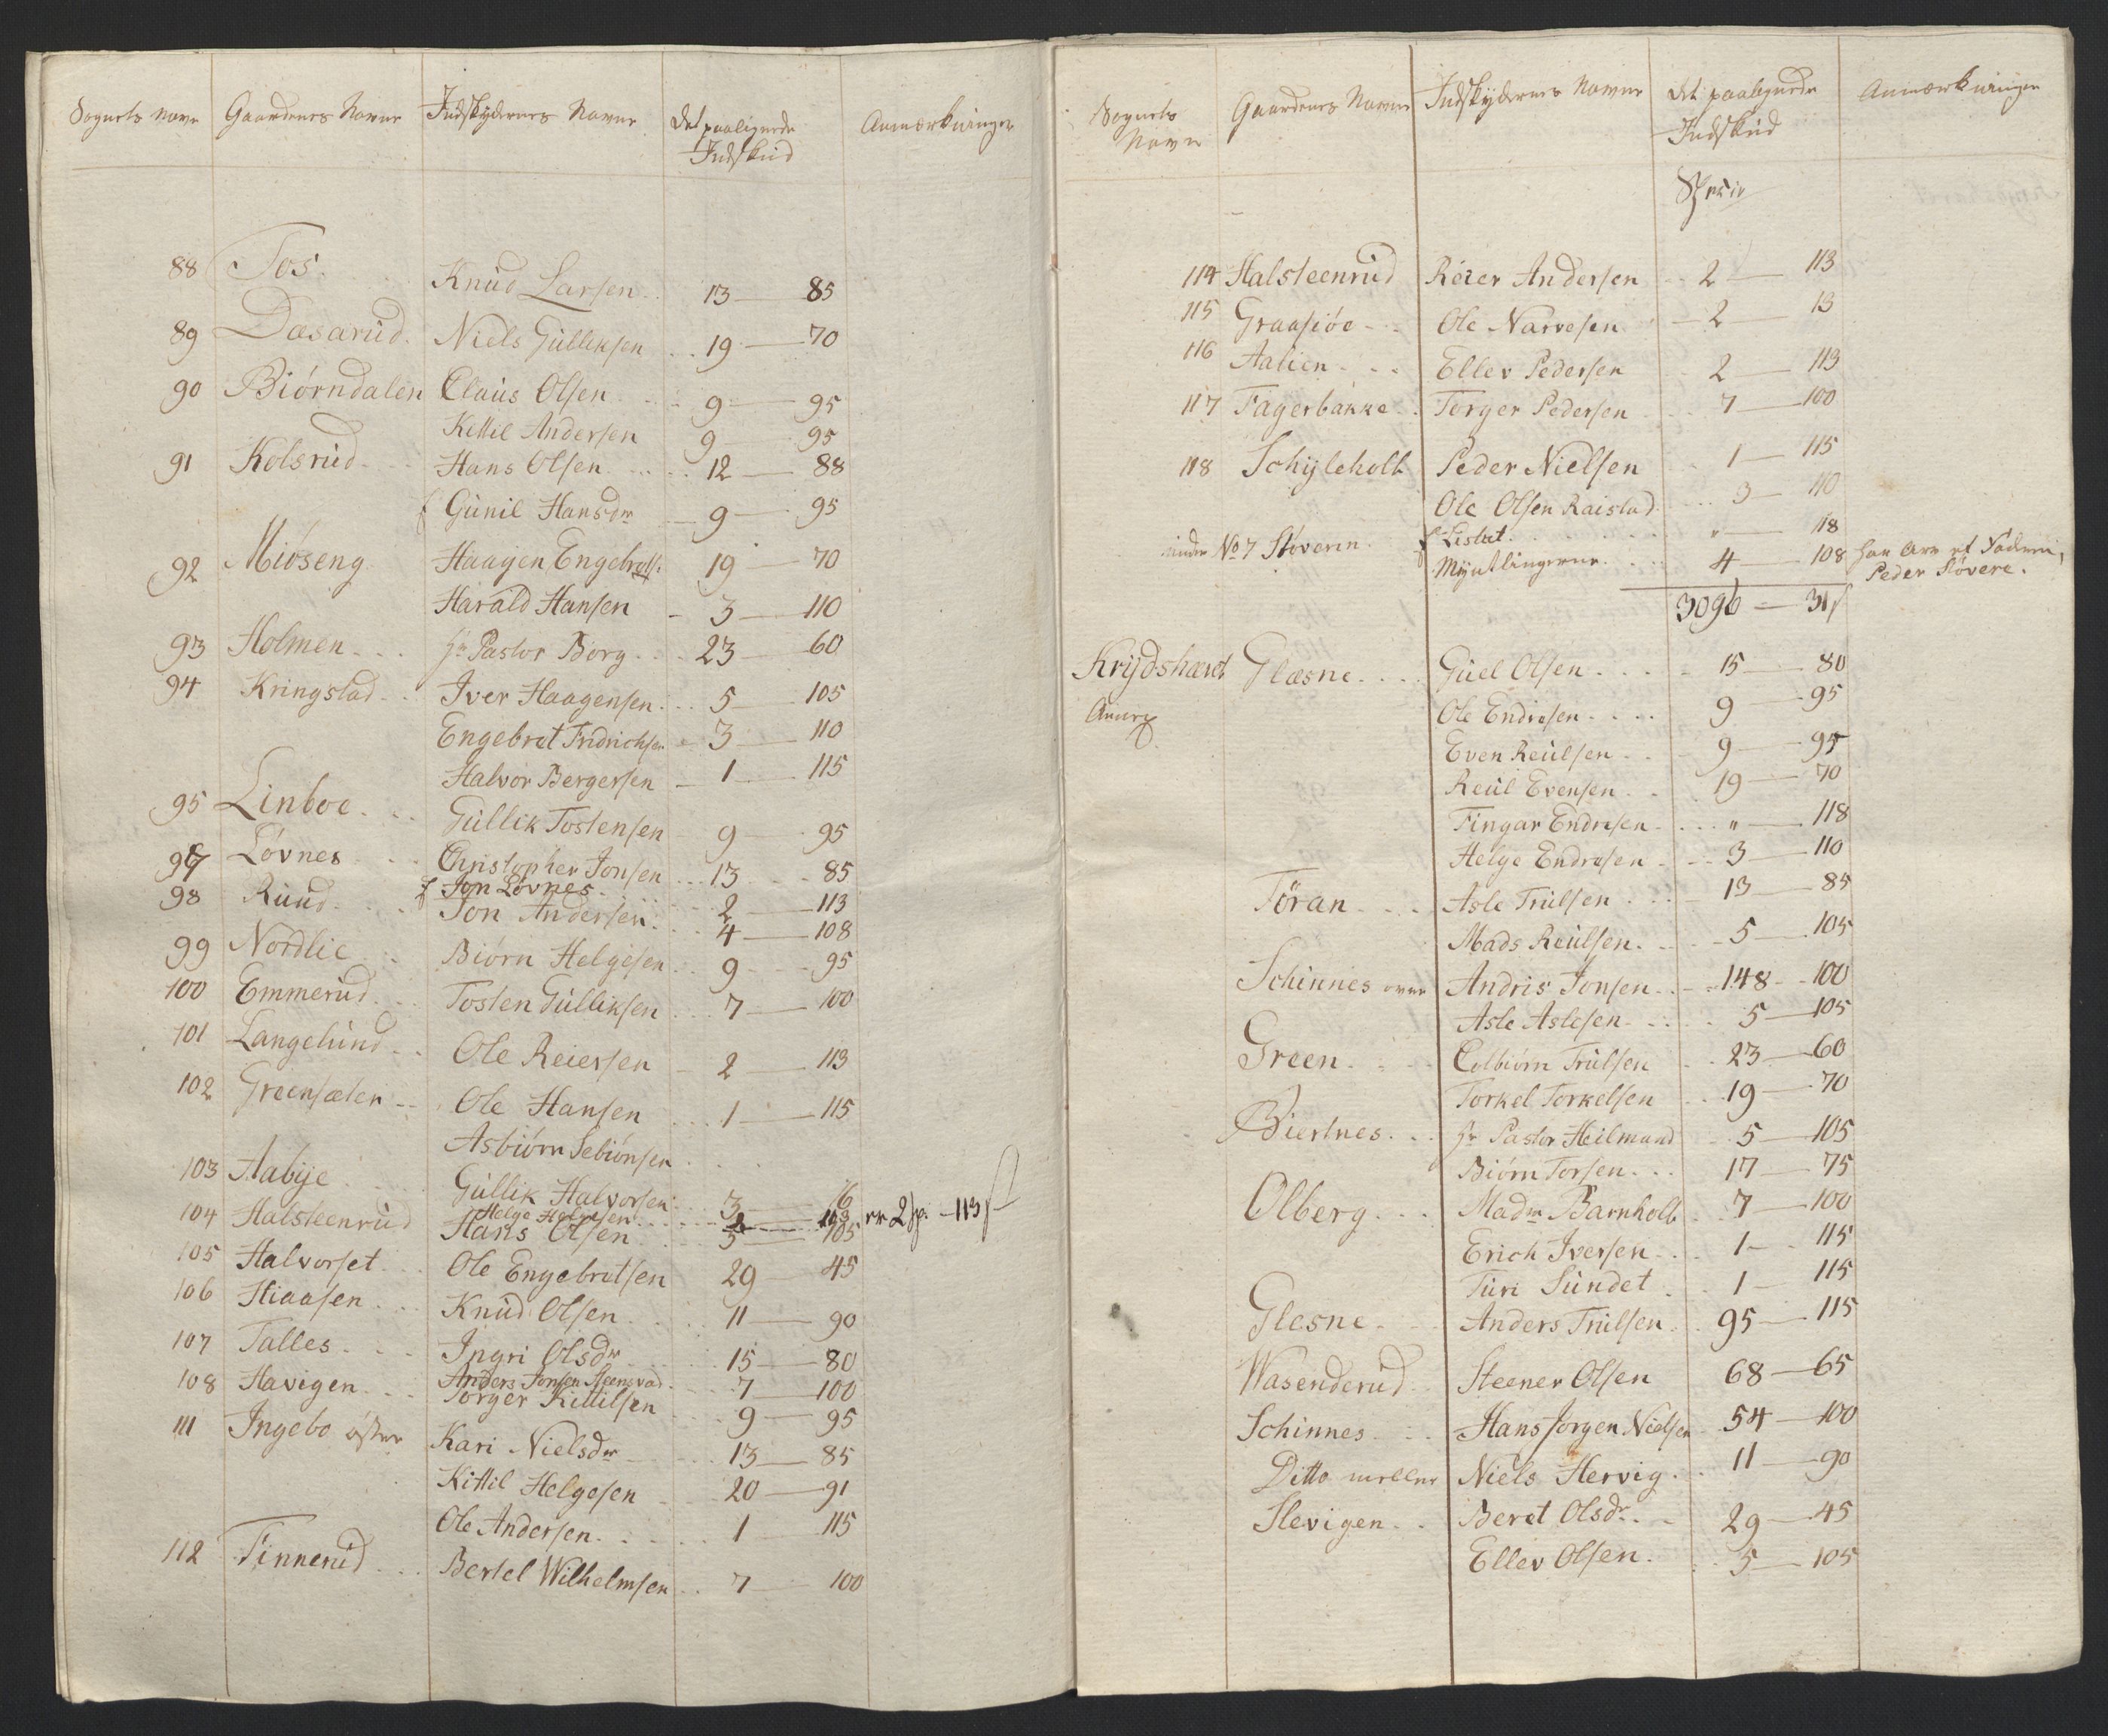 Sognets Navn Gaardenes Navne Indskydernes Navne Det paalignede Anmærkninger
Indskud
88 Tos. Knud Larsen 13 — 85
89 Dæsarud. Niels Gulliksen 19 — 70
90 Biørndalen Claus Olsen 9 — 95
Kittil Andersen 9 — 95
91 Kolsrud Hans Olsen 12 — 88
f Gunil Hansdr 9 — 95
92 Miøseng Haagen Engebrets. 19 — 70
Harald Hansen 3 — 110
93 Holmen Hr Pastor Borg 23 — 60
94 Kringstad Iver Haagensen 5 — 105
Engebret Fridrichsen 3 — 110
Halvor Bergersen 1 — 115
95 Linboe Gullik Tostensen 9 — 95
97 Løvnes Christopher Jonsen 13 — 85
f Jon Løvnes 2 — 113
98 Ruud Jon Andersen 4 — 108
99 Nordlie Biørn Helgesen 9 — 95
100 Emmerud Tosten Gulliksen 7 — 100
101 Langelund Ole Reiersen 2 — 113
102 Greensæter Ole Hansen 1 — 115
Asbiørn Sebiønsen
103 Aabye Gullik Halvorsen 3 — 16
Helge Helgesen 113 er 2 sp. — 113 s
104 Halsteenrud Hans Olsen 5 — 105
105 Halvorset Ole Engebretsen 29 — 45
106 Hiaasen Knud Olsen 11 — 90
107 Talles Ingri Olsdr 15 — 80
Anders Jonsen Steensvad 7 — 100
108 Havigen Torger Kittilsen 9 — 95
111 Ingebo østre Kari Nielsdr 13 — 85
Kittil Helgesen 20 — 91
Ole Andersen 1 115
112 Finnerud Bertel Wilhelmsen 7 100
Sognets Gaardenes Navne Indskydernes Navne Det paalignede Anmærkninger
Navn Indskud
Specie
114 Halsteenrud Reier Andersen 2 — 113
115 Graasiøe Ole Narvesen 2 — 13
116 Aalien Ellev Pedersen 2 — 113
117 Fagerbakke Torger Pedersen 7 — 100
118 Schyleholt Peder Nielsen 1 — 115
Ole Olsen Raistad 3 — 110
under No 7 Støveren f Lisbet " — 118
f Myntlingerne 4 — 108 har Arv ef Faderen,
Peder Støvere.
3096 — 31 s
Krydshærd Glæsne Guel Olsen 15 — 80
Annex Ole Endresen 9 — 95
Even Reulsen 9 — 95
Reul Evensen 19 — 70
Fingar Endresen " — 118
Helge Endresen 3 — 110
Töran Asle Trulsen 13 — 85
Mads Reulsen 5 — 105
Schinnes øvre Andris Jonsen 148 — 100
Asle Aslesen 5 — 105
Green Colbiørn Trulsen 23 — 60
Torkel Torkelsen 19 — 70
Biertnes Hr Pastor Heilmand 5 — 105
Biørn Torsen 17 — 75
Olberg Madm Barnholt 7 — 100
Erich Iversen 1 — 115
Turi Sundet 1 — 115
Glesne Anders Trulsen 95 — 115
Wasenderud Steener Olsen 68 — 65
Schinnes Hans Jørgen Nielsen 54 — 100
Ditto mellem Niels Hervig 11 — 90
Slevigen Beret Olsdr 29 — 45
Ellev Olsen 5 — 105